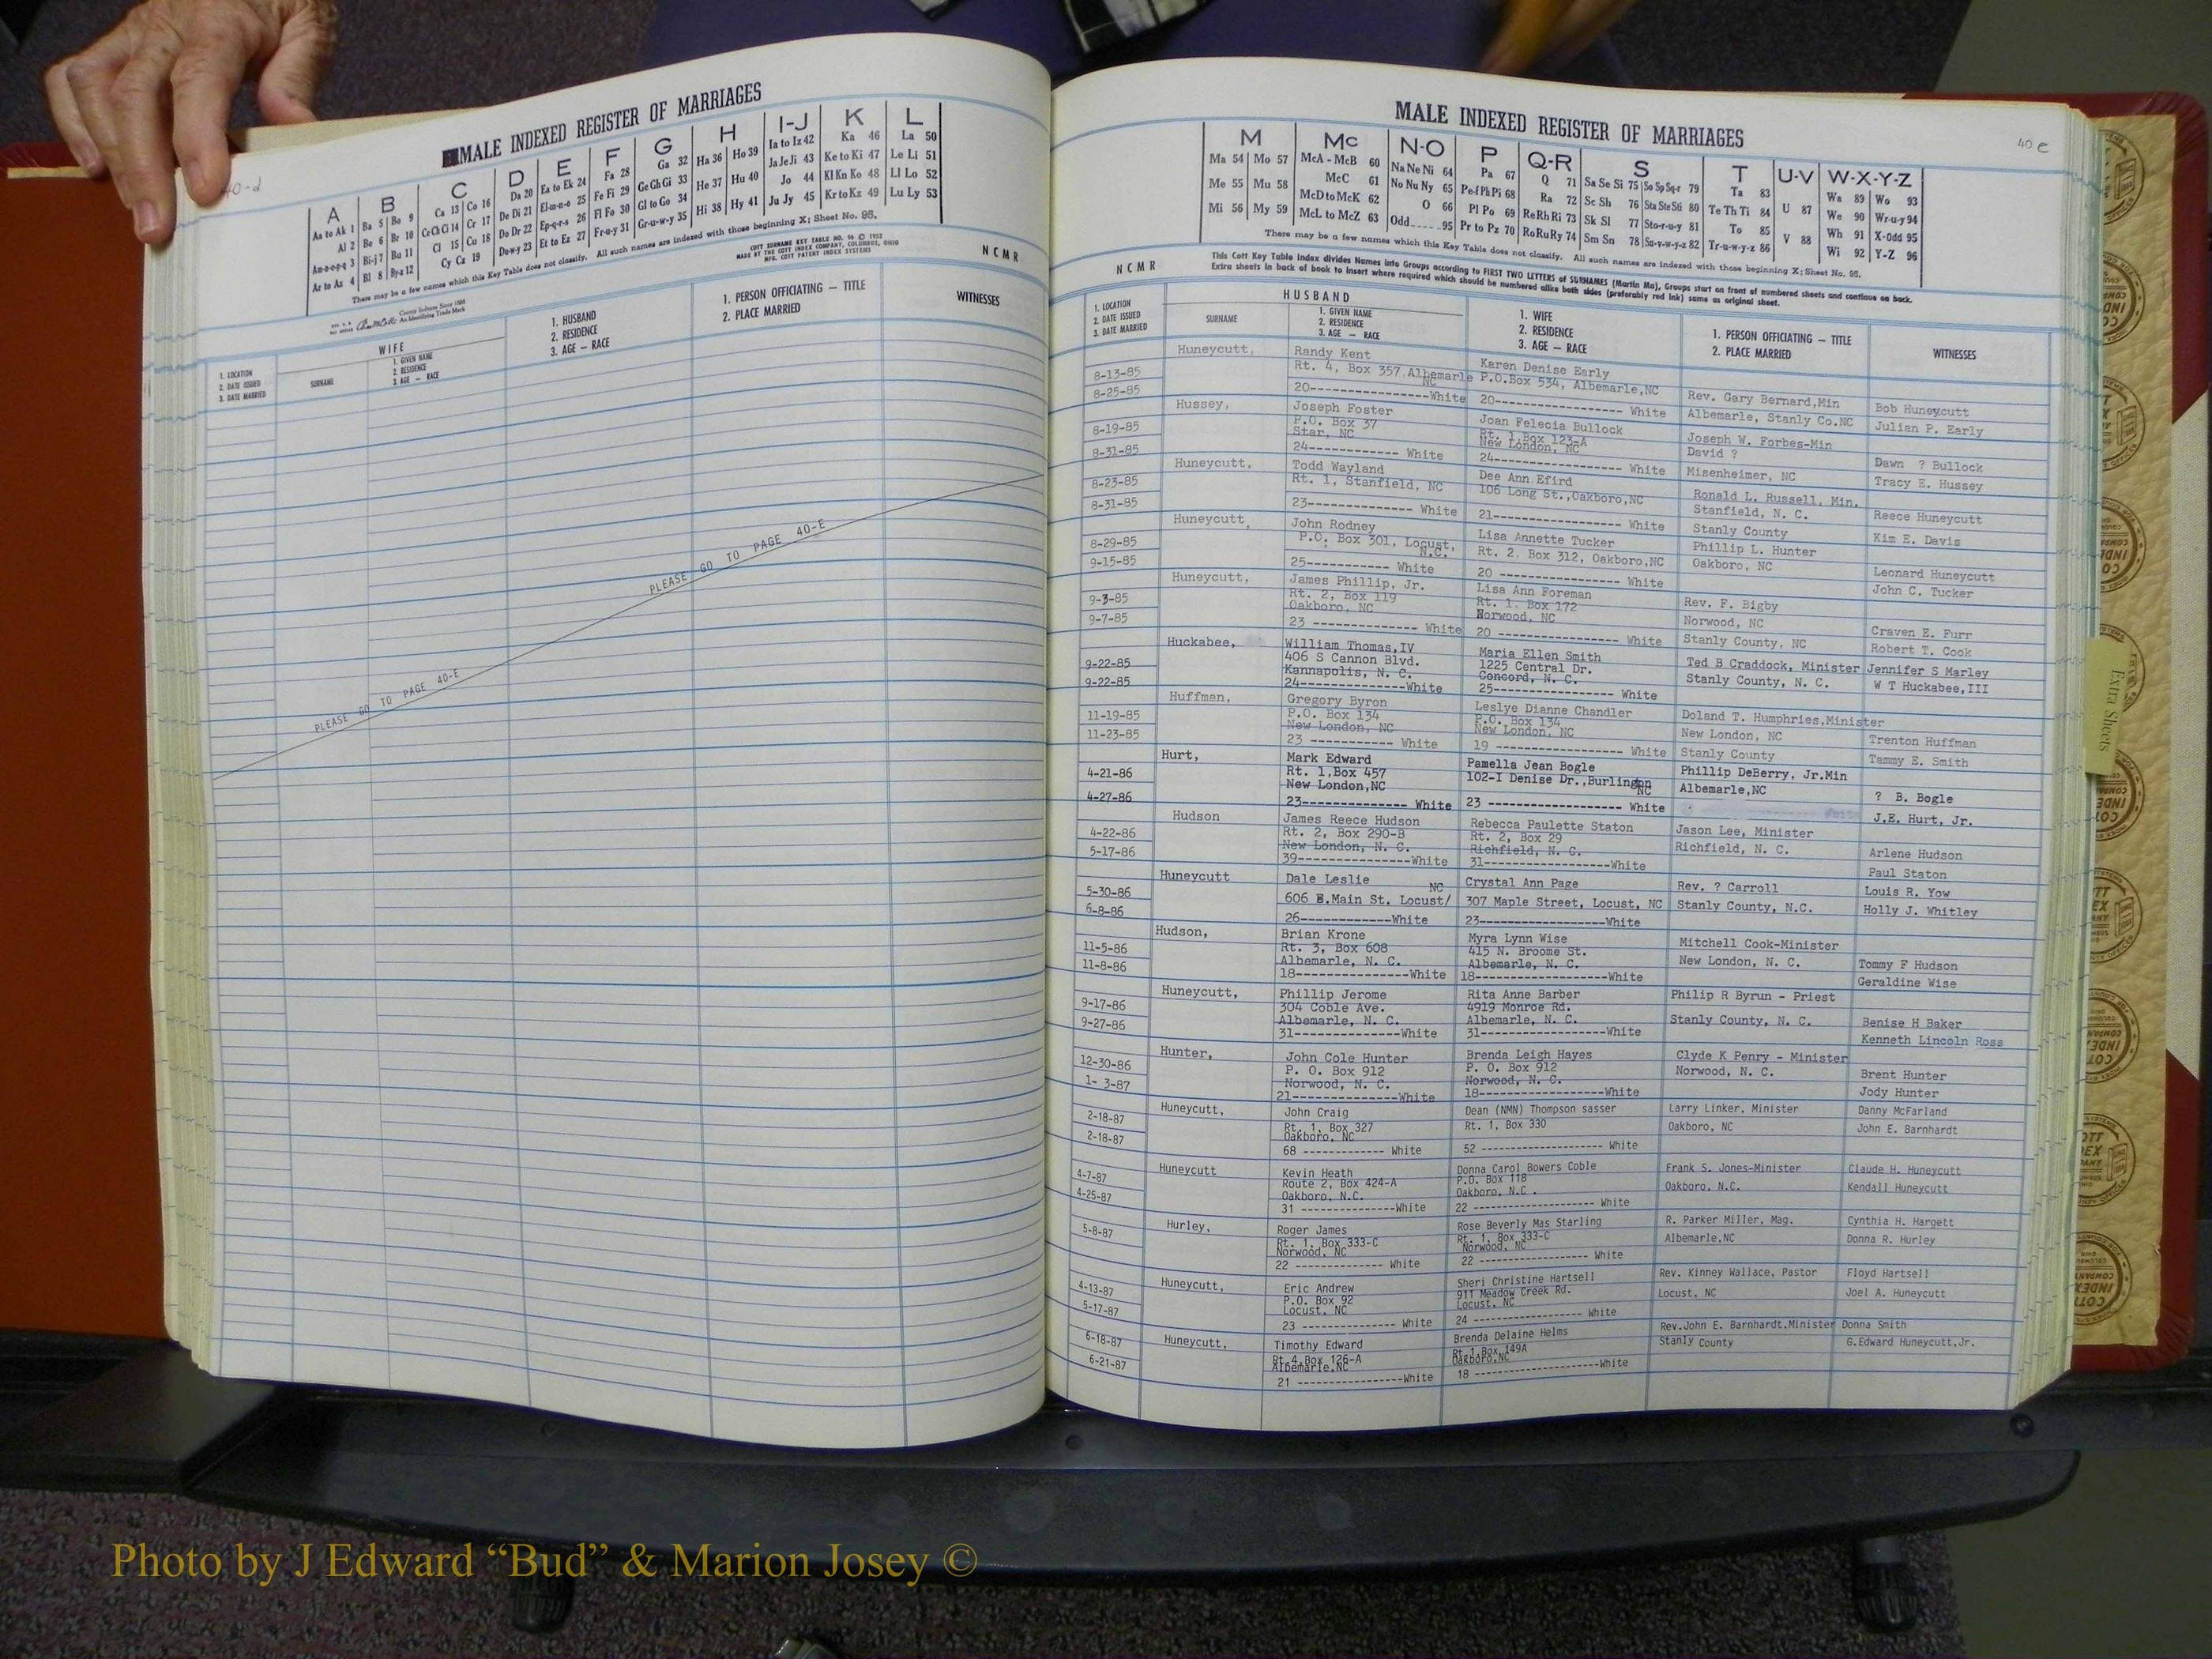 40-d
MALE INDEXED REGISTER OF MARRIAGES
A B C D E F G H I-J K L
Aa to Ak 1 Ba 5 Bo 9 Ca 13 Co 16 Da 20 Ea to Ek 24 Fa 28 Ga 32 Ha 36 Ho 39 Ia to Iz 42 Ka 46 La 50
Al 2 Be 6 Br 10 Ce Ch Ci 14 Cr 17 De Di 21 El-m-n-o 25 Fe Fi 29 Ge Gh Gi 33 He 37 Hu 40 Ja Je Ji 43 Ke to Ki 47 Le Li 51
Am-n-o-p-q 3 Bi-j 7 Bu 11 Cl 15 Cu 18 Do Dr 22 Ep-q-r-s 26 Fl Fo 30 Gl to Go 34 Hi 38 Hy 41 Jo 44 Kl Kn Ko 48 Ll Lo 52
Ar to Az 4 Bl 8 By-z 12 Cy Cz 19 Du-w-y 23 Et to Ez 27 Fr-u-y 31 Gr-u-w-y 35 Ju Jy 45 Kr to Kz 49 Lu Ly 53
There may be a few names which this Key Table does not classify. All such names are indexed with those beginning X; Sheet No. 95.
County Indexes Since 1888
An Identifying Trade Mark
COTT SURNAME KEY TABLE NO. 96 © 1952
MADE BY THE COTT INDEX COMPANY, COLUMBUS, OHIO
MFG. COTT PATENT INDEX SYSTEMS
NCMR
1. LOCATION
2. DATE ISSUED
3. DATE MARRIED
WIFE
SURNAME
1. GIVEN NAME
2. RESIDENCE
3. AGE — RACE
1. HUSBAND
2. RESIDENCE
3. AGE — RACE
1. PERSON OFFICIATING — TITLE
2. PLACE MARRIED
WITNESSES
PLEASE GO TO PAGE 40-E
PLEASE GO TO PAGE 40-E
40 e
MALE INDEXED REGISTER OF MARRIAGES
M Mc N-O P Q-R S T U-V W-X-Y-Z
Ma 54 Mo 57 McA - McB 60 Na Ne Ni 64 Pa 67 Q 71 Sa Se Si 75 So Sp Sq-r 79 Ta 83 U 87 Wa 89 Wo 93
Me 55 Mu 58 McC 61 No Nu Ny 65 Pe-f Ph Pi 68 Ra 72 Sc Sh 76 Sta Ste Sti 80 Te Th Ti 84 We 90 Wr-u-y 94
Mi 56 My 59 McD to McK 62 O 66 Pl Po 69 Re Rh Ri 73 Sk Sl 77 Sto-r-u-y 81 To 85 V 88 Wh 91 X-Odd 95
McL to McZ 63 Odd 95 Pr to Pz 70 Ro Ru Ry 74 Sm Sn 78 Su-v-w-y-z 82 Tr-u-w-y-z 86 Wi 92 Y-Z 96
There may be a few names which this Key Table does not classify. All such names are indexed with those beginning X; Sheet No. 95.
NCMR
This Cott Key Table Index divides Names into Groups according to FIRST TWO LETTERS of SURNAMES (Martin Ma), Groups start on front of numbered sheets and continue on back.
Extra sheets in back of book to insert where required which should be numbered alike both sides (preferably red ink) same as original sheet.
1. LOCATION
2. DATE ISSUED
3. DATE MARRIED
HUSBAND
SURNAME
1. GIVEN NAME
2. RESIDENCE
3. AGE — RACE
1. WIFE
2. RESIDENCE
3. AGE — RACE
1. PERSON OFFICIATING — TITLE
2. PLACE MARRIED
WITNESSES
Huneycutt, Randy Kent Karen Denise Early
8-13-85 Rt. 4, Box 357, Albemarle NC P.O.Box 534, Albemarle,NC Rev. Gary Bernard,Min Bob Huneycutt
8-25-85 20-------------White 20----------------- White Albemarle, Stanly Co.NC Julian P. Early
Hussey, Joseph Foster Joan Felecia Bullock
8-19-85 P.O. Box 37 Rt. 1,Box 123-A Joseph W. Forbes-Min
Star, NC New London, NC David ? Dawn ? Bullock
8-31-85 24------------ White 24----------------- White Misenheimer, NC Tracy E. Hussey
Huneycutt, Todd Wayland Dee Ann Efird
8-23-85 Rt. 1, Stanfield, NC 106 Long St.,Oakboro,NC Ronald L. Russell, Min.
Stanfield, N. C. Reece Huneycutt
8-31-85 23------------- White 21----------------- White Stanly County Kim E. Davis
Huneycutt, John Rodney Lisa Annette Tucker
8-29-85 P.O. Box 301, Locust, N.C. Rt. 2, Box 312, Oakboro,NC Phillip L. Hunter Leonard Huneycutt
9-15-85 25----------- White 20 ---------------- White Oakboro, NC John C. Tucker
Huneycutt, James Phillip, Jr. Lisa Ann Foreman
9-3-85 Rt. 2, Box 119 Rt. 1, Box 172 Rev. F. Bigby
Oakboro, NC Norwood, NC Norwood, NC Craven E. Furr
9-7-85 23 ------------- White 20 ---------------- White Stanly County, NC Robert T. Cook
Huckabee, William Thomas,IV Maria Ellen Smith
9-22-85 406 S Cannon Blvd. 1225 Central Dr. Ted B Craddock, Minister Jennifer S Marley
Kannapolis, N. C. Concord, N. C. Stanly County, N. C. W T Huckabee,III
9-22-85 24--------------White 25---------------- White
Huffman, Gregory Byron Leslye Dianne Chandler
11-19-85 P.O. Box 134 P.O. Box 134 Doland T. Humphries,Minister
New London, NC New London, NC New London, NC Trenton Huffman
11-23-85 23 ----------- White 19 ----------------- White Stanly County Tammy E. Smith
Hurt, Mark Edward Pamella Jean Bogle
4-21-86 Rt. 1,Box 457 102-I Denise Dr.,Burlington NC Phillip DeBerry, Jr.Min
New London,NC Albemarle,NC ? B. Bogle
4-27-86 23-------------- White 23 ------------------ White J.E. Hurt, Jr.
Hudson James Reece Hudson Rebecca Paulette Staton
4-22-86 Rt. 2, Box 290-B Rt. 2, Box 29 Jason Lee, Minister
New London, N. C. Richfield, N. C. Richfield, N. C. Arlene Hudson
5-17-86 39--------------White 31----------------White Paul Staton
Huneycutt Dale Leslie Crystal Ann Page Rev. ? Carroll Louis R. Yow
5-30-86 606 E.Main St. Locust/ NC 307 Maple Street, Locust, NC Stanly County, N.C. Holly J. Whitley
6-8-86 26-------------White 23-----------------White
Hudson, Brian Krone Myra Lynn Wise
11-5-86 Rt. 3, Box 608 415 N. Broome St. Mitchell Cook-Minister
Albemarle, N. C. Albemarle, N. C. New London, N. C. Tommy F Hudson
11-8-86 18---------------White 18-----------------White Geraldine Wise
Huneycutt, Phillip Jerome Rita Anne Barber Philip R Byrun - Priest
9-17-86 304 Coble Ave. 4919 Monroe Rd.
Albemarle, N. C. Albemarle, N. C. Stanly County, N. C. Benise H Baker
9-27-86 31--------------White 31----------------White Kenneth Lincoln Ross
Hunter, John Cole Hunter Brenda Leigh Hayes Clyde K Penry - Minister
12-30-86 P. O. Box 912 P. O. Box 912 Norwood, N. C. Brent Hunter
1- 3-87 Norwood, N. C. Norwood, N. C. Jody Hunter
21---------------White 18-----------------White
Huneycutt, John Craig Dean (NMN) Thompson sasser Larry Linker, Minister Danny McFarland
2-18-87 Rt. 1, Box 327 Rt. 1, Box 330 Oakboro, NC John E. Barnhardt
2-18-87 Oakboro, NC
68 ------------- White 52 -------------------- White
Huneycutt Kevin Heath Donna Carol Bowers Coble Frank S. Jones-Minister Claude H. Huneycutt
4-7-87 Route 2, Box 424-A P.O. Box 118 Oakboro, N.C. Kendall Huneycutt
4-25-87 Oakboro, N.C. Oakboro, N.C.
31 ---------------White 22 -------------------- White
Hurley, Roger James Rose Beverly Mas Starling R. Parker Miller, Mag. Cynthia H. Hargett
5-8-87 Rt. 1, Box 333-C Rt. 1, Box 333-C Albemarle,NC Donna R. Hurley
Norwood, NC Norwood, NC
22 ---------------- White 22 ------------------ White
Huneycutt, Eric Andrew Sheri Christine Hartsell Rev. Kinney Wallace, Pastor Floyd Hartsell
4-13-87 P.O. Box 92 911 Meadow Creek Rd. Locust, NC Joel A. Huneycutt
5-17-87 Locust, NC Locust, NC
23 --------------- White 24 ------------------- White
Huneycutt, Timothy Edward Brenda Delaine Helms Rev.John E. Barnhardt,Minister Donna Smith
6-18-87 Rt.4,Box 126-A Rt.1,Box 149A Stanly County G.Edward Huneycutt,Jr.
6-21-87 Albemarle,NC Oakboro,NC
21 -----------------White 18 --------------------White
Extra Sheets
Photo by J Edward “Bud” & Marion Josey ©